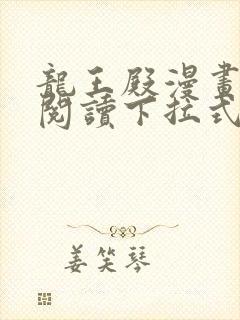 龍王殿漫畫
閱讀下拉式
姜笑琴